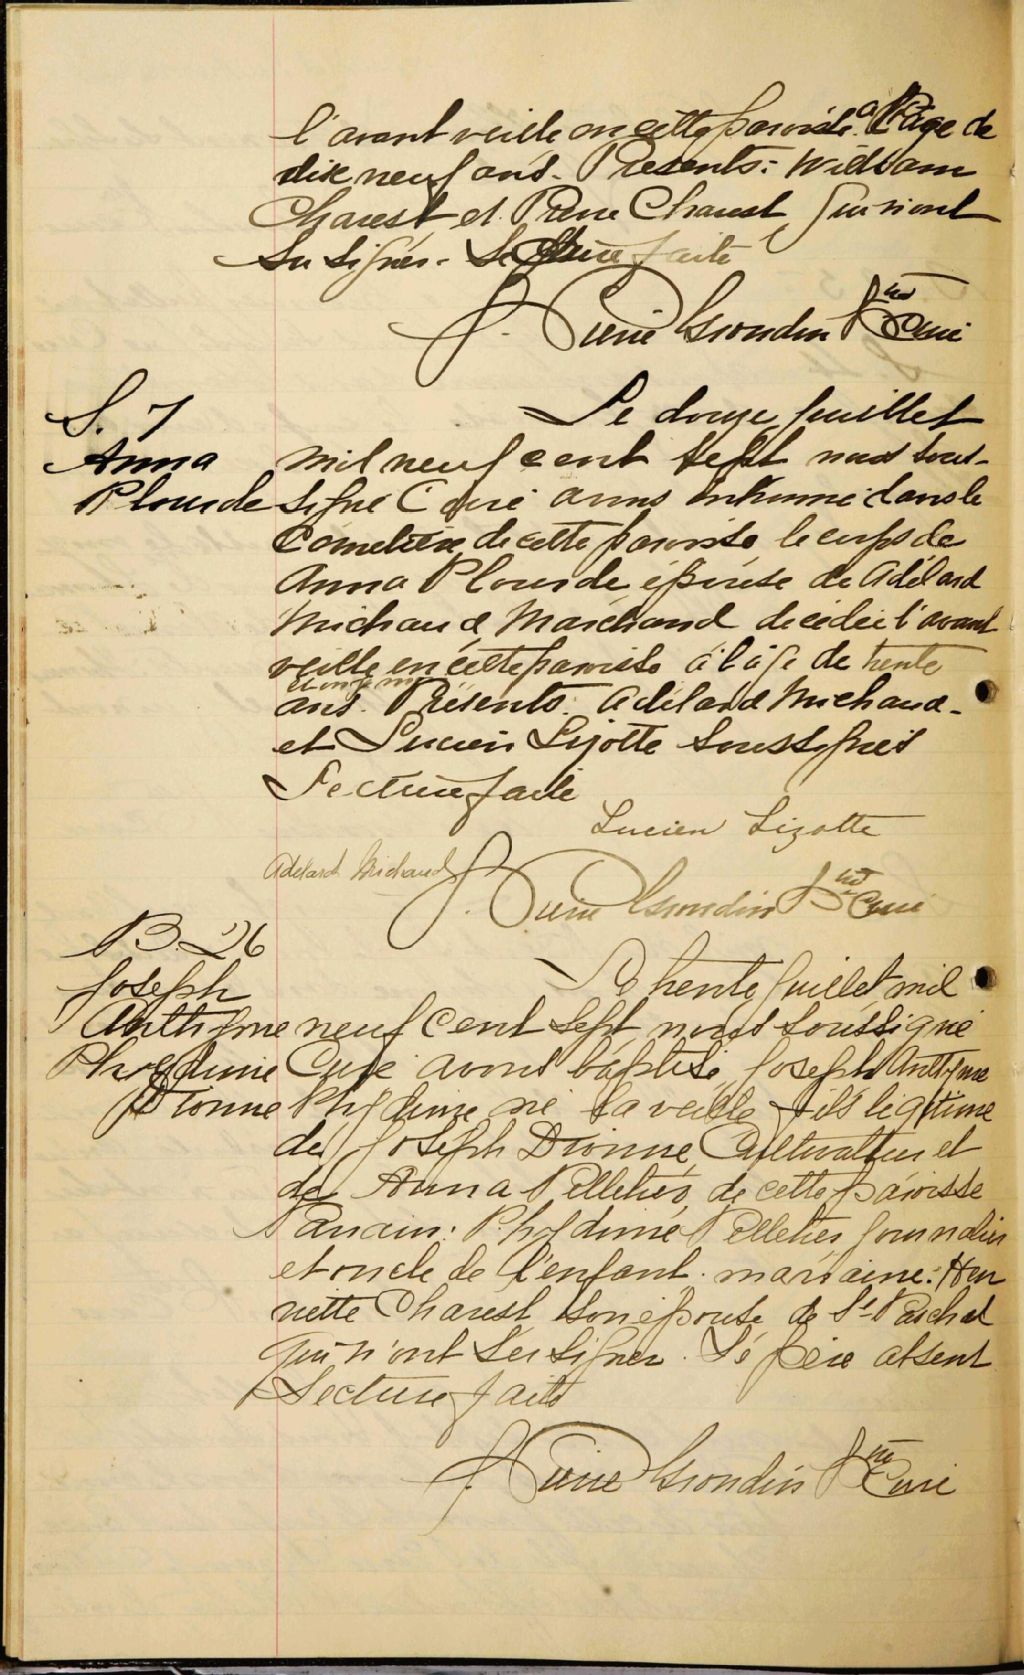 l'avant veille en cette paroisse à l'âge de
dix neuf ans. Présents: William
Charest et Pierre Charest qui n'ont
su signer. Lecture faite
J. Pierre Grondin Ptre Curé
S. 7
Anna
Plourde
Le douze juillet
mil neuf cent sept nous sous-
signé Curé avons inhumé dans le
Cimetière de cette paroisse le corps de
Anna Plourde épouse de Adélard
Michaud Marchand décédée l'avant
veille en cette paroisse à l'âge de trente
ans. Présents. Adélard Michaud
et Lucien Lizotte soussignés
Lecture faite
Lucien Lizotte
Adélard Michaud
J. Pierre Grondin Ptre Curé
B. 26
Joseph
Anthyme
Phydime
Dionne
Le trente juillet mil
neuf cent sept nous soussigné
Curé avons baptisé Joseph Anthyme
Phydime né la veille fils légitime
de Joseph Dionne Cultivateur et
de Anna Pelletier de cette paroisse
Parrain: Phydime Pelletier journalier
et oncle de l'enfant. marraine: Hen
riette Charest son épouse de St Paschal
qui n'ont su signer. Le père absent
Lecture faite
J. Pierre Grondin Ptre Curé